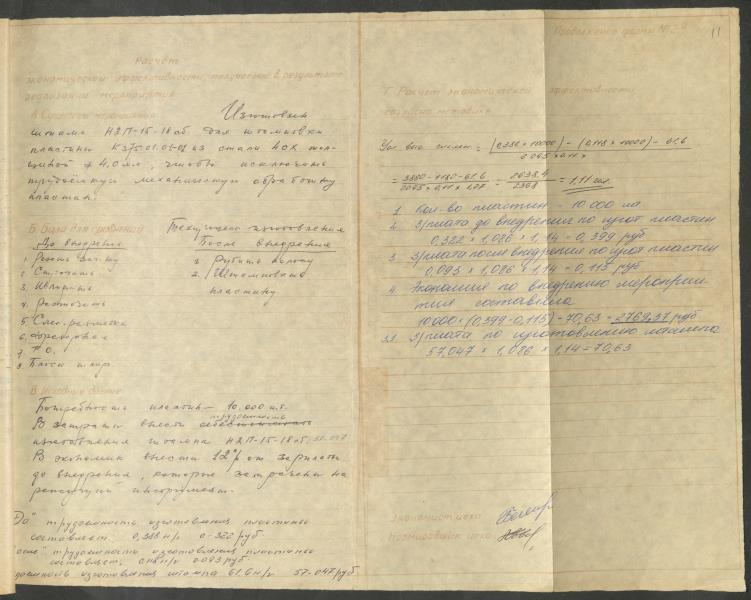 Расчет
экономической эффективности, полученной в результате
реализации мероприятия
А. Существо мероприятия Изготовлен
штампа НДП-15-18сб для штамповки
пластины К375.01.05-08 из стали 40Х тол-
щиной 4.0мм, чтобы исключить
трудоёмкую механическую обработку
пластин.
Б. База для сравнения Техпроцесс изготовления
До внедрения После внедрения
1. Резать
2. Строгать
3. Шлифовать
4. Разметить
5. Слес. разметка
6. Фрезеровать
7. Т.О.
8. Плоск шлиф
1. Рубить полосу
2. Штамповать
пластину
В. Исходные данные
Потребность пластин - 10.000 шт.
В затраты внести трудоемкость
изготовления штампа НДП-15-18сб. 57.047
В экономию внести 12% от зарплаты
до внедрения, которые затрачены на
режущий инструмент.
"До" трудоемкость изготовления пластины
составляет: 0,388 н/ч 0-322 руб
"после" трудоемкость изготовления пластины
составляет: 0,118 н/ч 0.093 руб.
трудоемкость изготовления штампа 61.6 н/ч 57.047 руб
Продолжение формы № 2 11
Г. Расчет экономической эффективности
согласно методике
Усл. выс. челов. = (0388 × 10000) - (0,118 × 10000) - 61,6
= 3880-1180-61,6 = 2638.4 = 1,11 чел.
2368
1. Кол-во пластин - 10.000 шт
2. З/плата до внедрения по изгот пластин
0,322 × 1,086 × 1,14 = 0,399 руб
3. З/плата после внедрения по изгот пластин
0,093 × 1,086 × 1,14 = 0,115 руб
4. Экономия по внедрению мероприя-
тия составила
10000 × (0,399-0,115) - 70,63 = 2769,37 руб
3.1 З/плата по изготовлению штампа
57,047 × 1,086 × 1,14 = 70,63
Экономист цеха
Нормировщик цеха